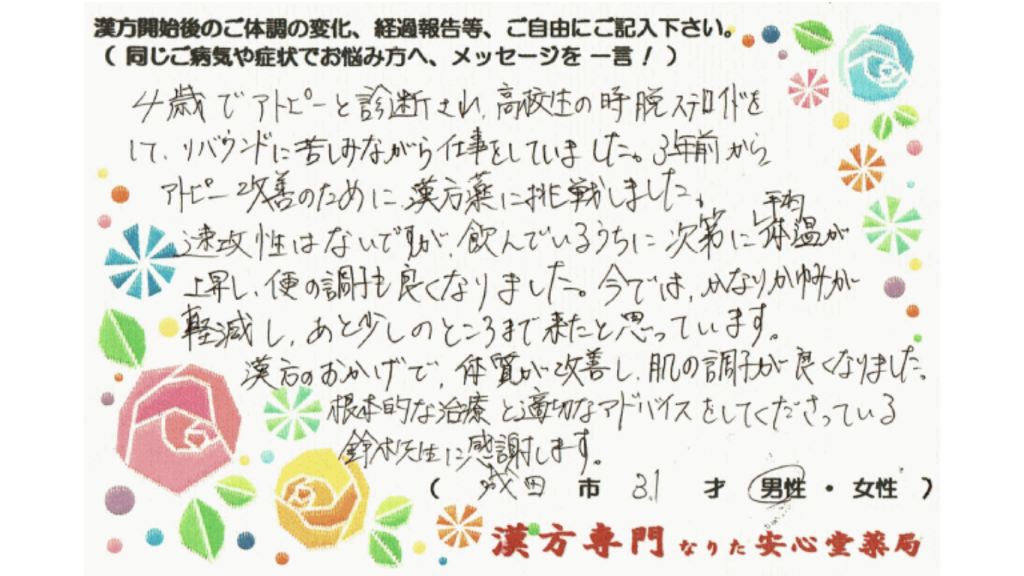 漢方開始後のご体調の変化、経過報告等、ご自由にご記入下さい。
( 同じご病気や症状でお悩み方へ、メッセージを 一言！ )
4歳でアトピーと診断され、高校生の時脱ステロイドを
して、リバウンドに苦しみながら仕事をしていました。3年前から
アトピー改善のために漢方薬に挑戦しました。
速攻性はないですが、飲んでいるうちに次第に平均体温が
上昇し、便の調子も良くなりました。今では、かなりかゆみが
軽減し、あと少しのところまで来たと思っています。
漢方のおかげで、体質が改善し、肌の調子が良くなりました。
根本的な治療と適切なアドバイスをしてくださっている
鈴木先生に感謝します。
( 成田 市 31 才 男性 ・ 女性 )
漢方専門 なりた 安心堂薬局